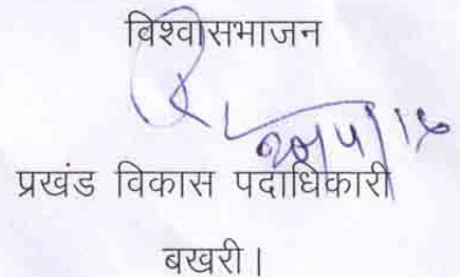 विश्वासभाजन
प्रखंड विकास पदाधिकारी
बखरी।